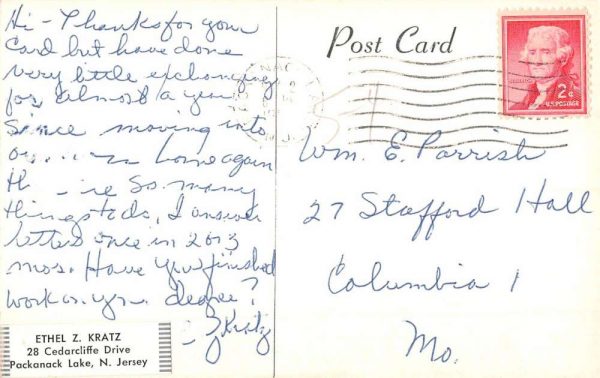 Hi - Thanks for your
Card but have done
very little exchanging
for almost a year
Since moving into
home again
so many
things to do, I answer
letters once in 2 or 3
mos. Have you finished
work on yr. degree?
E Kratz
ETHEL Z. KRATZ
28 Cedarcliffe Drive
Packanack Lake, N. Jersey
Post Card
2¢
U.S. POSTAGE
Wm. E. Parrish
27 Stafford Hall
Columbia 1
Mo.